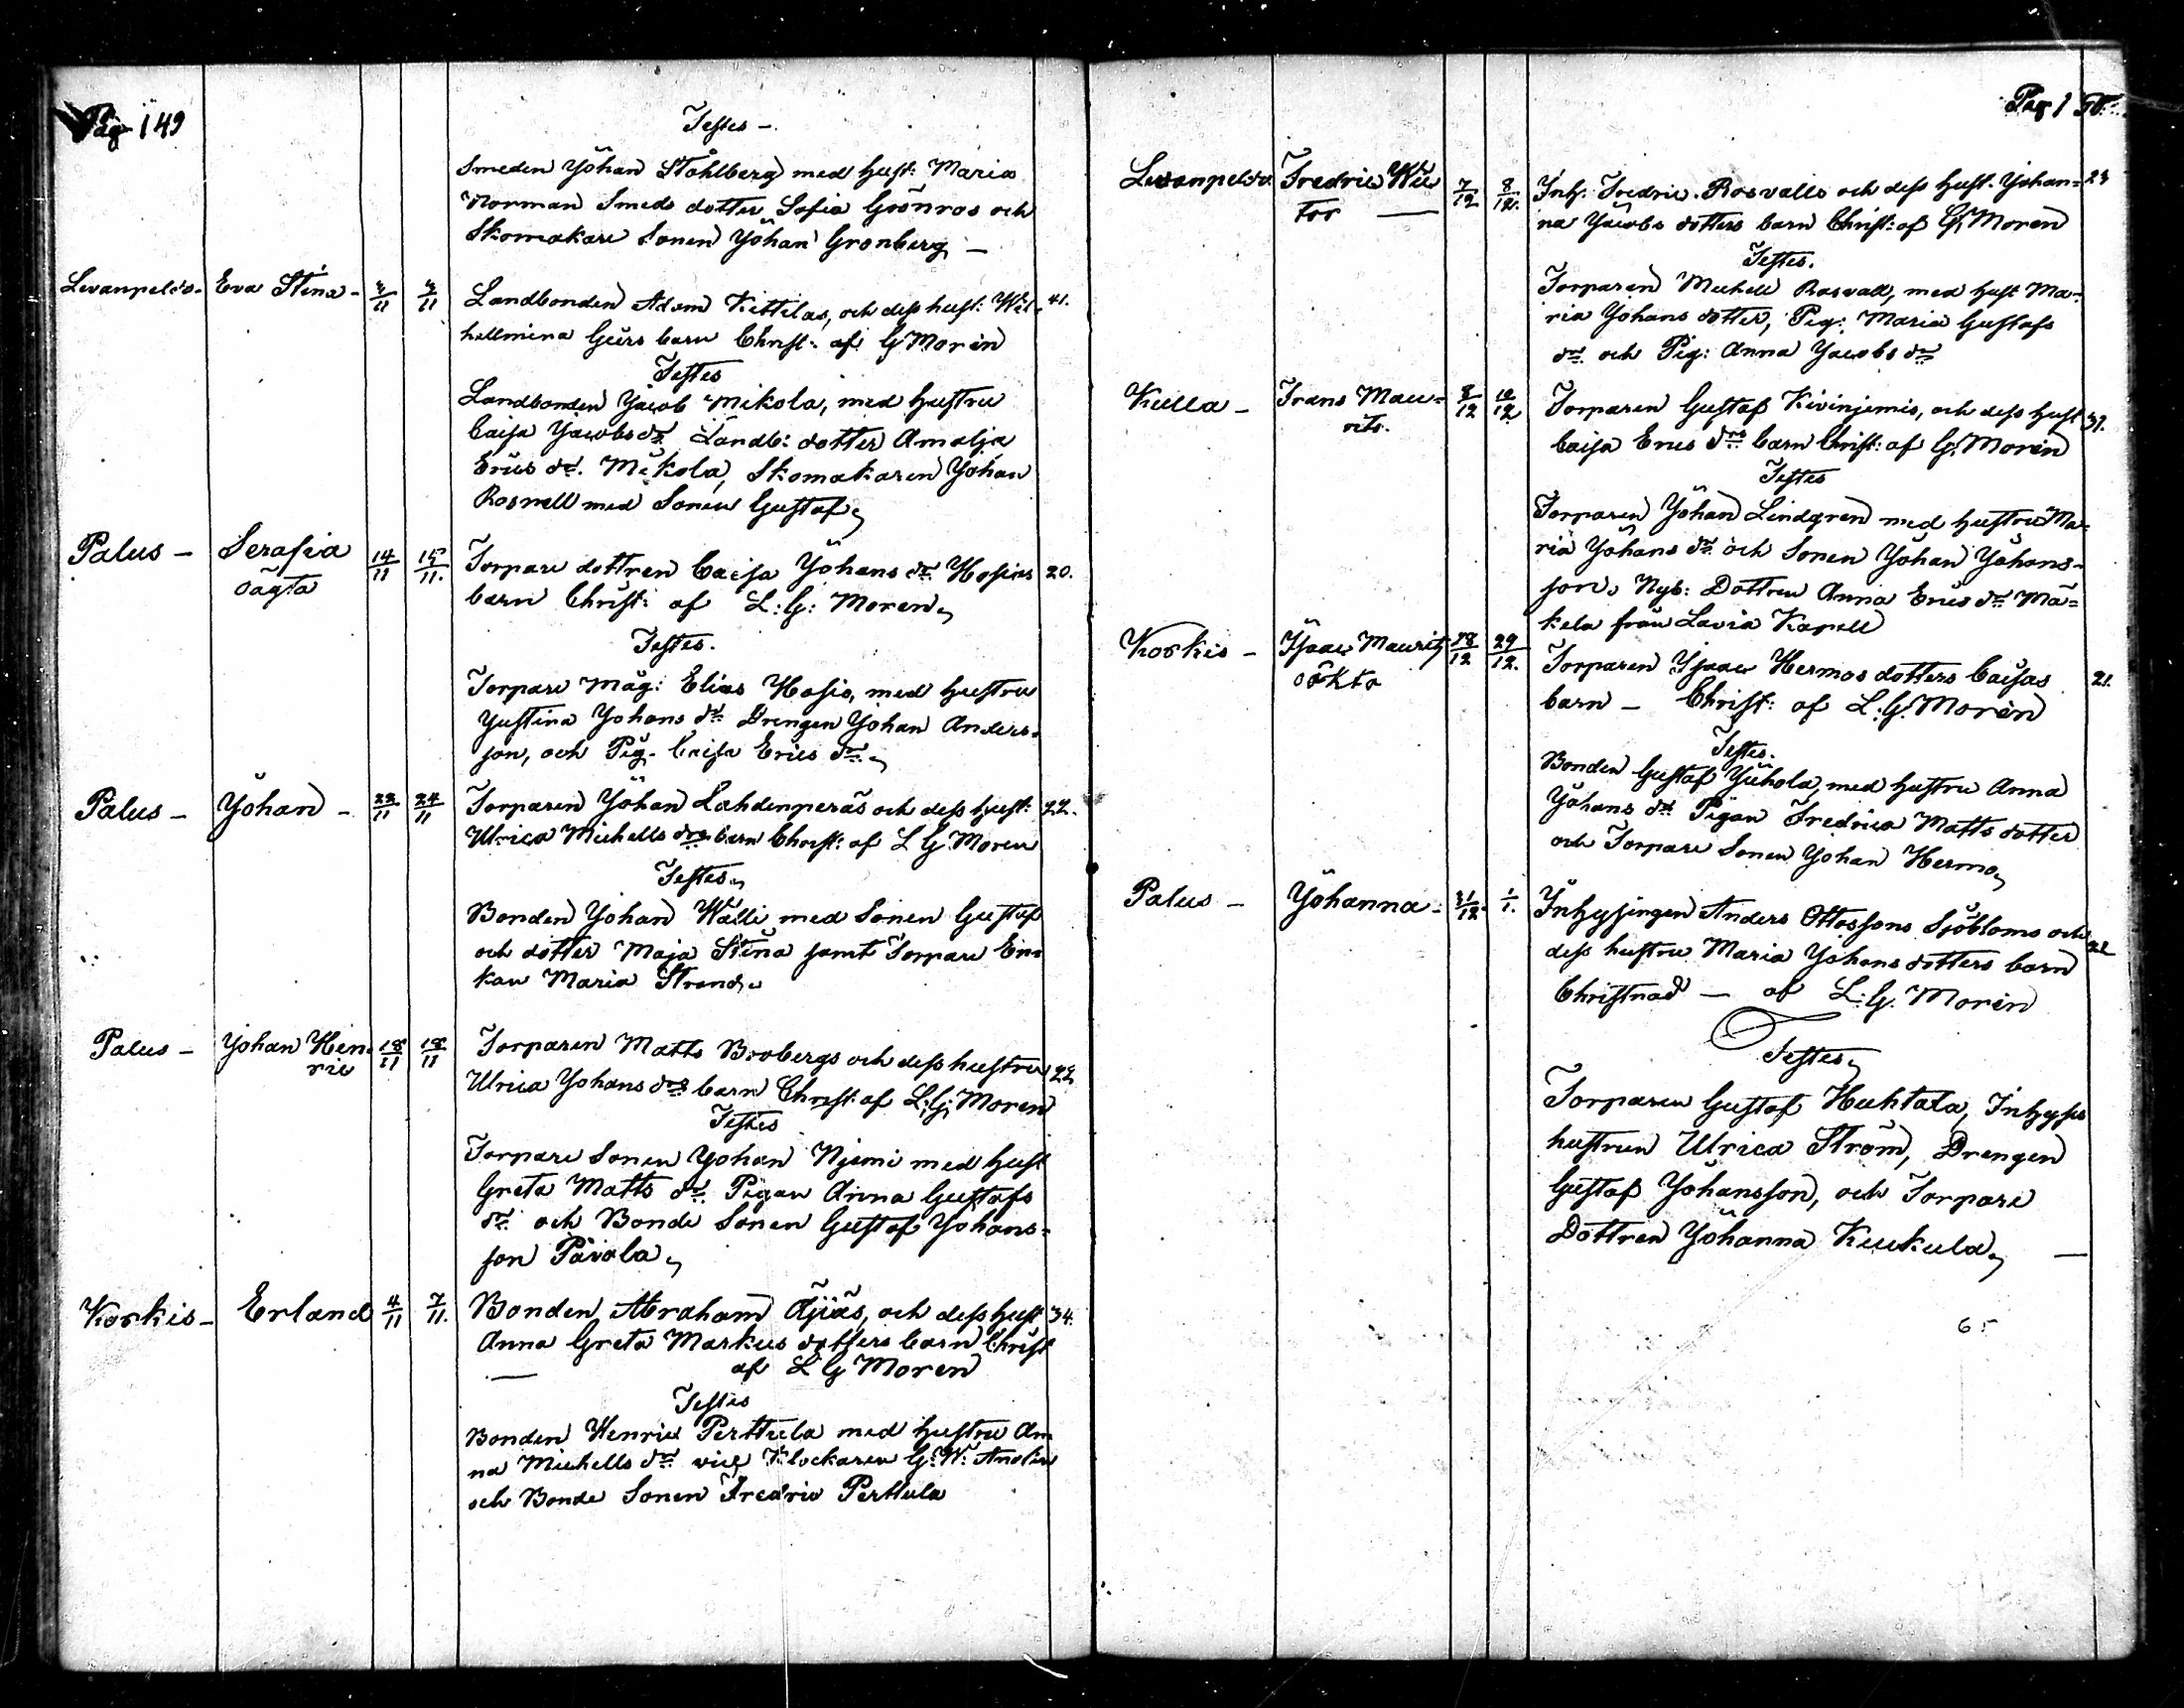 Pag 149
Testes -
Smeden Johan Ståhlberg med hust: Maria
Norman Smeds dotter Sofia Grönros och
Skomakare Sonen Johan Grönberg -
Levanpelto - Eva Stina - 3/11 4/11 Landbonden Adam Kittilas, och dess hust: Wil- 41.
hellmina Geers barn Christ: af G Moren
Testes
Landbonden Jacob Mikola, med hustru
Caisa Jacobs dr Landb: dotter Amalja
Erics dr. Mikola, Skomakaren Johan
Rosvell med Sonen Gustaf
Palus - Serafia 14/11 15/11. Torpare dottren Caisa Johans dr Hosios 20.
oägta barn Christ: af L: G: Moren
Testes.
Torpare Måg: Elias Hosio, med hustru
Justina Johans dr Drengen Johan Anders-
son, och Pig. Caisa Erics dr.
Palus - Johan - 22/11 24/11 Torparen Johan Lahdenperäs och dess hust: 22.
Ulrica Michells drs barn Christ: af L G Moren
Testes
Bonden Johan Wälli med Sonen Gustaf
och dotter Maja Stina samt Torpare En-
kan Maria Strand
Palus - Johan Hen- 18/11 18/11 Torparen Matts Brobergs och dess hustru 22
ric Ulrica Johans drs barn Christ: af L: G: Moren
Testes
Torpare Sonen Johan Njemi med hust
Greta Matts dr. Pigan Anna Gustafs
dr. och Bonde Sonen Gustaf Johans-
son Pävola
Korkis - Erland 4/11 7/11. Bonden Abraham Äijäs, och dess hust 34.
Anna Greta Markus dotters barn Christ
af L G Moren
Testes
Bonden Henric Perttula med hustru An-
na Michells dr. vice Klockaren G: W: Anolin
och Bonde Sonen Fredric Perttula
Pag 150.
Levanpelto Fredric Wic 7/12 8/12. Inh. Fredric Rosvalls och dess hust. Johan- 23
tor - na Jacobs dotters barn Christ: af G Moren
Testes.
Torparen Michell Rosvall, med hust Ma-
ria Johans dotter, Pig: Maria Gustafs
dr. och Pig: Anna Jacobs dr
Kulla - Frans Mau- 8/12 10/12 Torparen Gustaf Kivinjemis, och dess hust 37.
rits. Caisa Erics drs barn Christ: af G. Moren
Testes
Torparen Johan Lindgren med hustru Ma-
ria Johans dr och Sonen Johan Johans-
son, Nyb: Dottren Anna Erics dr Mä-
kela från Lavia Kapell
Korkis - Isaac Mauritz 28/12 29/12. Torparen Isaac Hermos dotters Caisas 21.
oäkta barn - Christ: af L: G. Moren
Testes.
Bonden Gustaf Juhola, med hustru Anna
Johans dr Pigan Fredrica Matts dotter
och Torpare Sonen Johan Hermo
Palus - Johanna - 31/12. 1/1. Inhysingen Anders Ottossons Sjöbloms och 22
dess hustru Maria Johans dotters barn
Christnad - af L: G. Moren
Testes
Torparen Gustaf Huhtala, Inhyses
hustrun Ulrica Ström, Drengen
Gustaf Johansson, och Torpare
Dottren Johanna Kuukula -